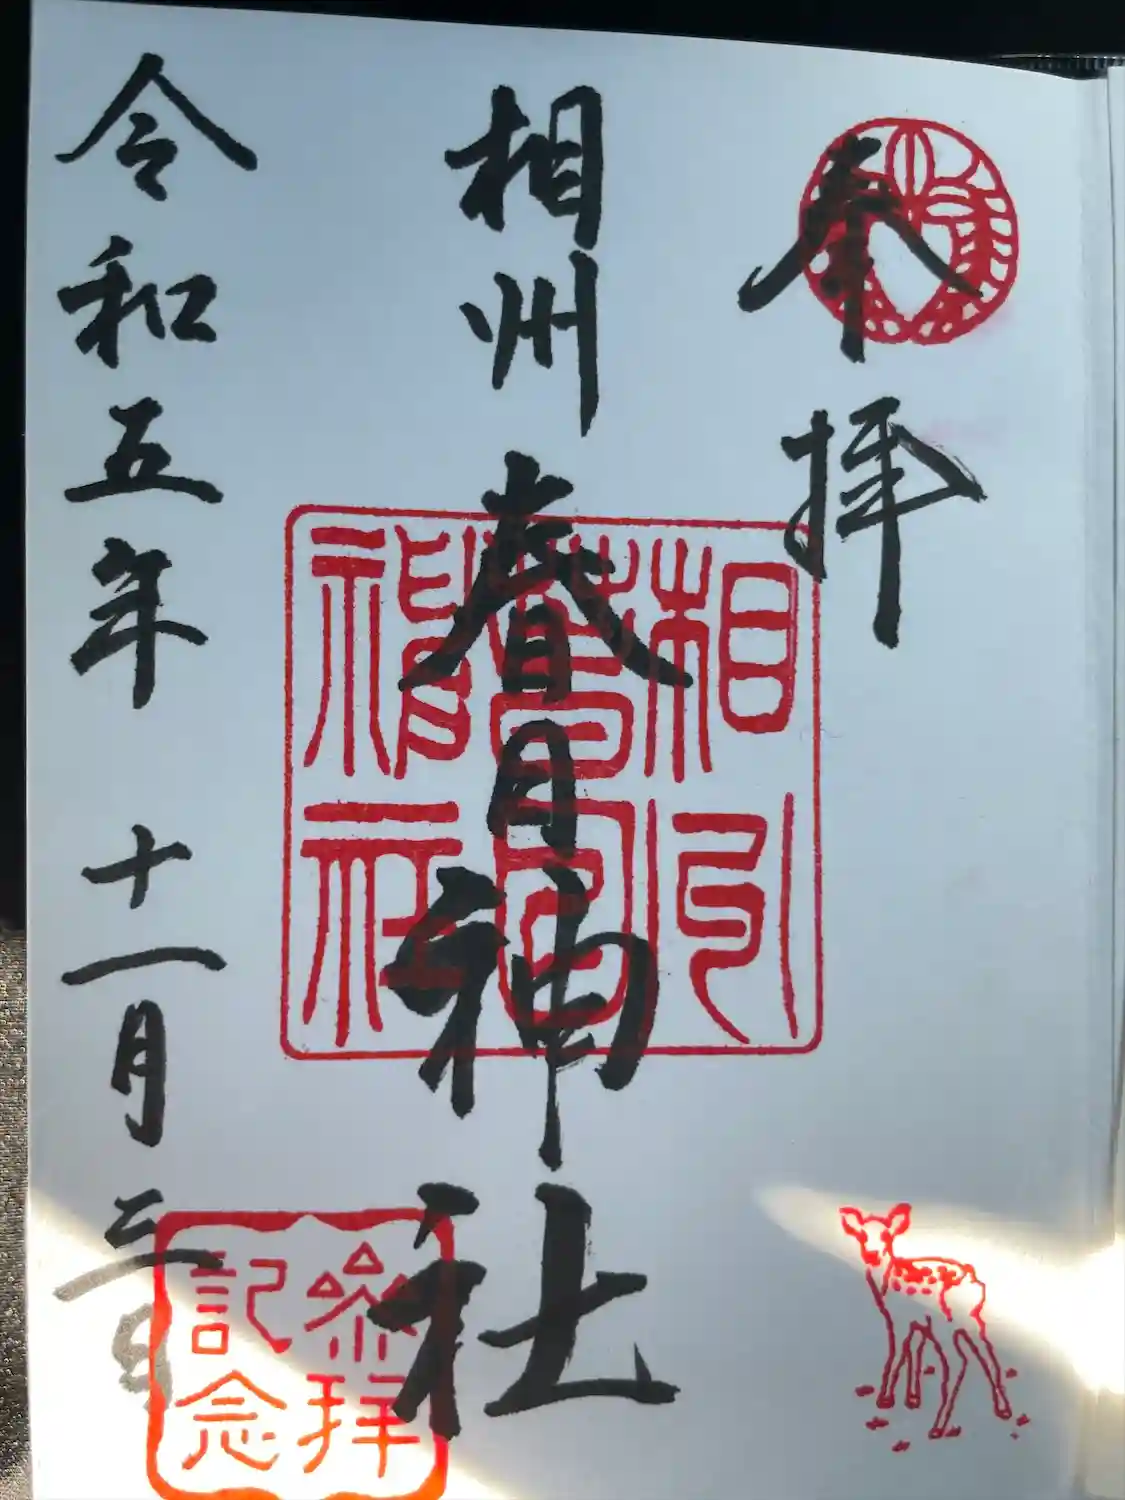 奉拝
相州
春日神社
令和五年
十一月三日
相州
春日
神社
參拝
記念